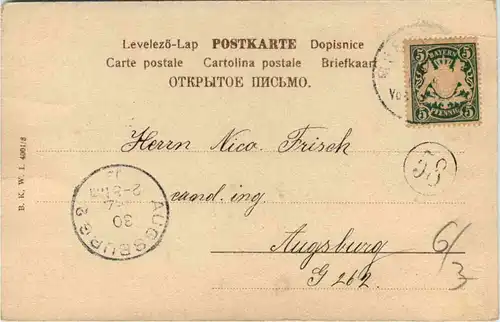 Levelező-Lap POSTKARTE Dopisnice
Carte postale Cartolina postale Briefkaart
ОТКРЫТОЕ ПИСЬМО.
5 BAYERN 5
5 PFENNIG 5
Herrn Nico. Frisch
cand. ing.
Augsburg
G 262.
6/3
B. K. W. I. 4901/2
AUGSBURG 3
30